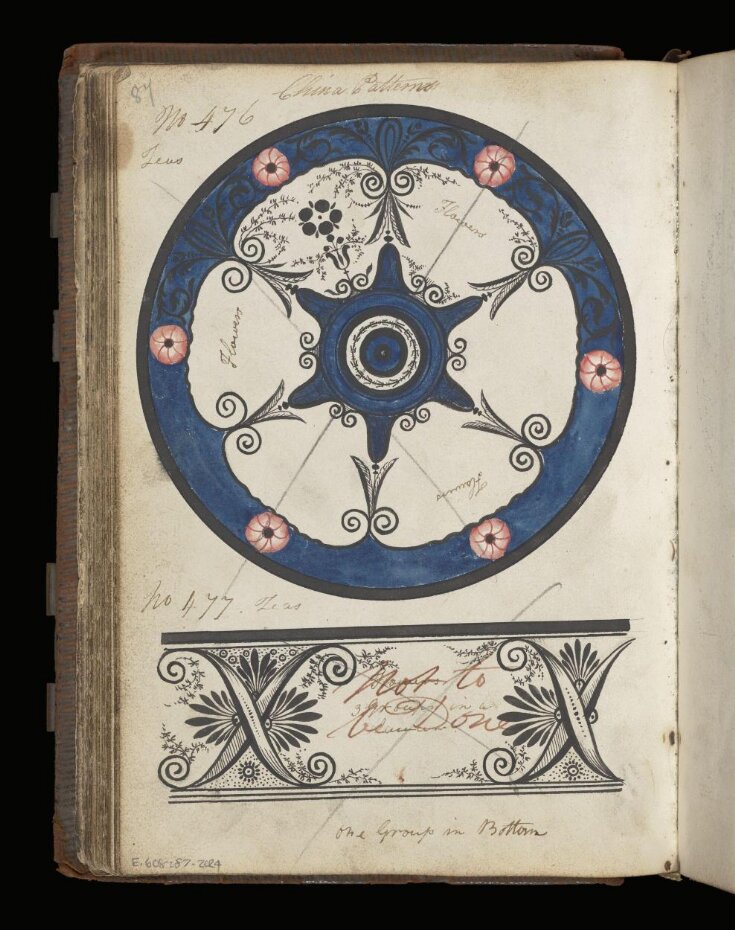 87
China Patterns
No 476
Teas
Flowers
Flowers
Flowers
No 477. Teas
Not to
in a
be Done
one Group in Bottom
E.608:87-2024